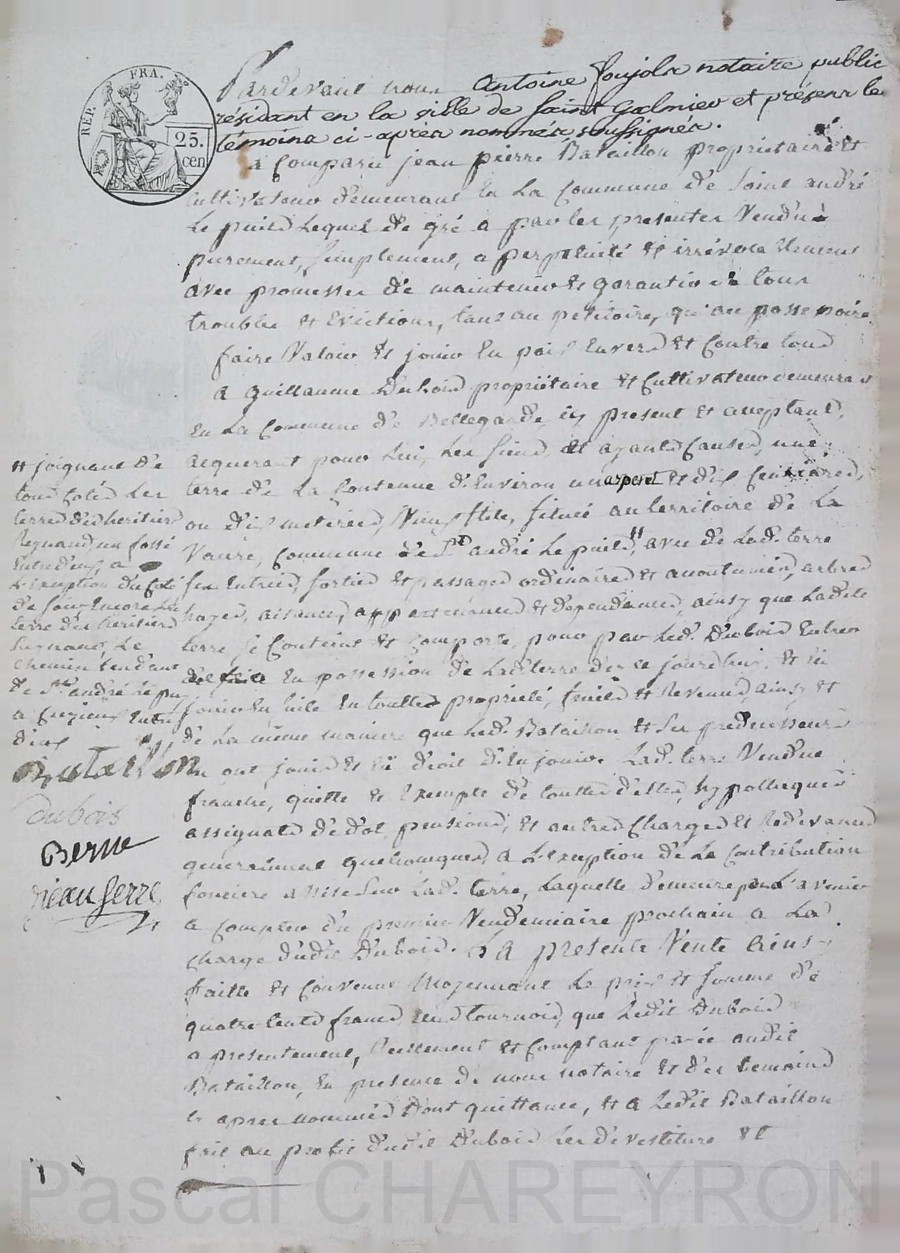 REP. FRA.
25.
cen
Pardevant nous Antoine Joujols notaire public
résidant en la ville de Saint Galmier et présent les
témoins ci-après nommés soussignés.
a Comparu jean pierre Bataillon propriétaire et
Cultivateur demeurant En La Commune de Saint andré
Le puid Lequel de gré a par les presentes Vendu
purement, simplement, a perpetuité et irrévocablement
avec promesse de maintenir et garantir de tous
troubles et Evictions, tant au petitoire, qu'au possessoire
faire Valoir et jouir En paix Envers et Contre tous
a Guillaume Dubois propriétaire et Cultivateur demeurant
En La Commune de Bellegarde, icy present et acceptant,
acquerant pour Lui, Les siens, et ayants Causes, une
terre de La Contenue d'Environ un arpent et dix Centiares,
ou dix meterées, Vieux stile, située au territoire de La
Vaure, Commune de St andré Le puid, avec de Lad. terre
ses Entrées, sorties et passages ordinaires et acoutumés, arbres
hayes, aisances, appartenances et dependances, ainsy que Ladite
terre se Contient et Comporte, pour par Led. Dubois Entrer
de suite En possession de Lad. terre des ce jourdhui, et En
jouir En utile En toutte propriété, fruits et Revenus, ainsy et
de La même maniere que Led. Bataillon et Ses predecesseurs
En ont jouis et Eu droit d'En jouir. Lad. terre Vendue
franche, quitte et Exempte de touttes dettes, hypotheques
assignats de dot, pensions, et autres Charges et Redevances
generalement quelconques, a L'Exeption de La Contribution
fonciere assise Sur Lad. terre, Laquelle demeure pour l'avenir
a Compter du premier Vendemiaire prochain a La
charge dudit Dubois. La presente Vente ainsi
faitte et Convenue Moyennant Le prix et somme de
quatre Cents francs, tournois, que Ledit Dubois
a presentement, Reellement et Comptant payée audit
Bataillon, En presence de nous notaire et des temoins
cy apres nommés dont quittance, et a Ledit Bataillon
fait au profit dudit Dubois Les divestiture et
# joignant de
tous Cotés Les
terres des heritiers
Reynaud, un fossé
Entredeux, a
L'Exeption du Coté
de soir Encore La
terre des heritiers
Le
chemin tendant
de St andré Le puy
a Cuzieu Entre
deux
Bataillon
Dubois
Berne
Jean Serre
Pascal CHAREYRON